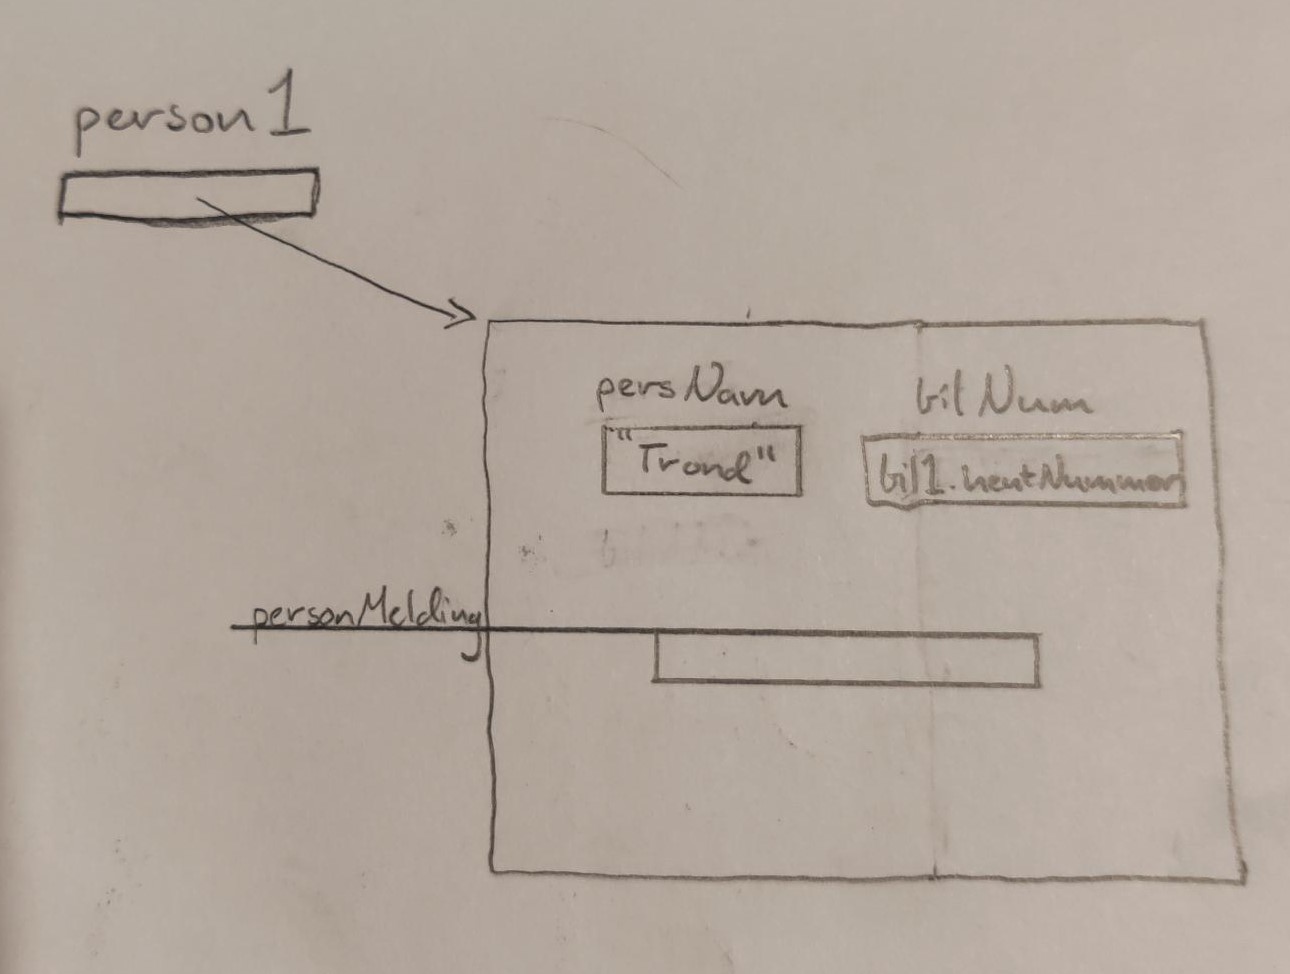 person1
persNavn
bilNum
"Trond"
bil1.hentNummer
personMelding